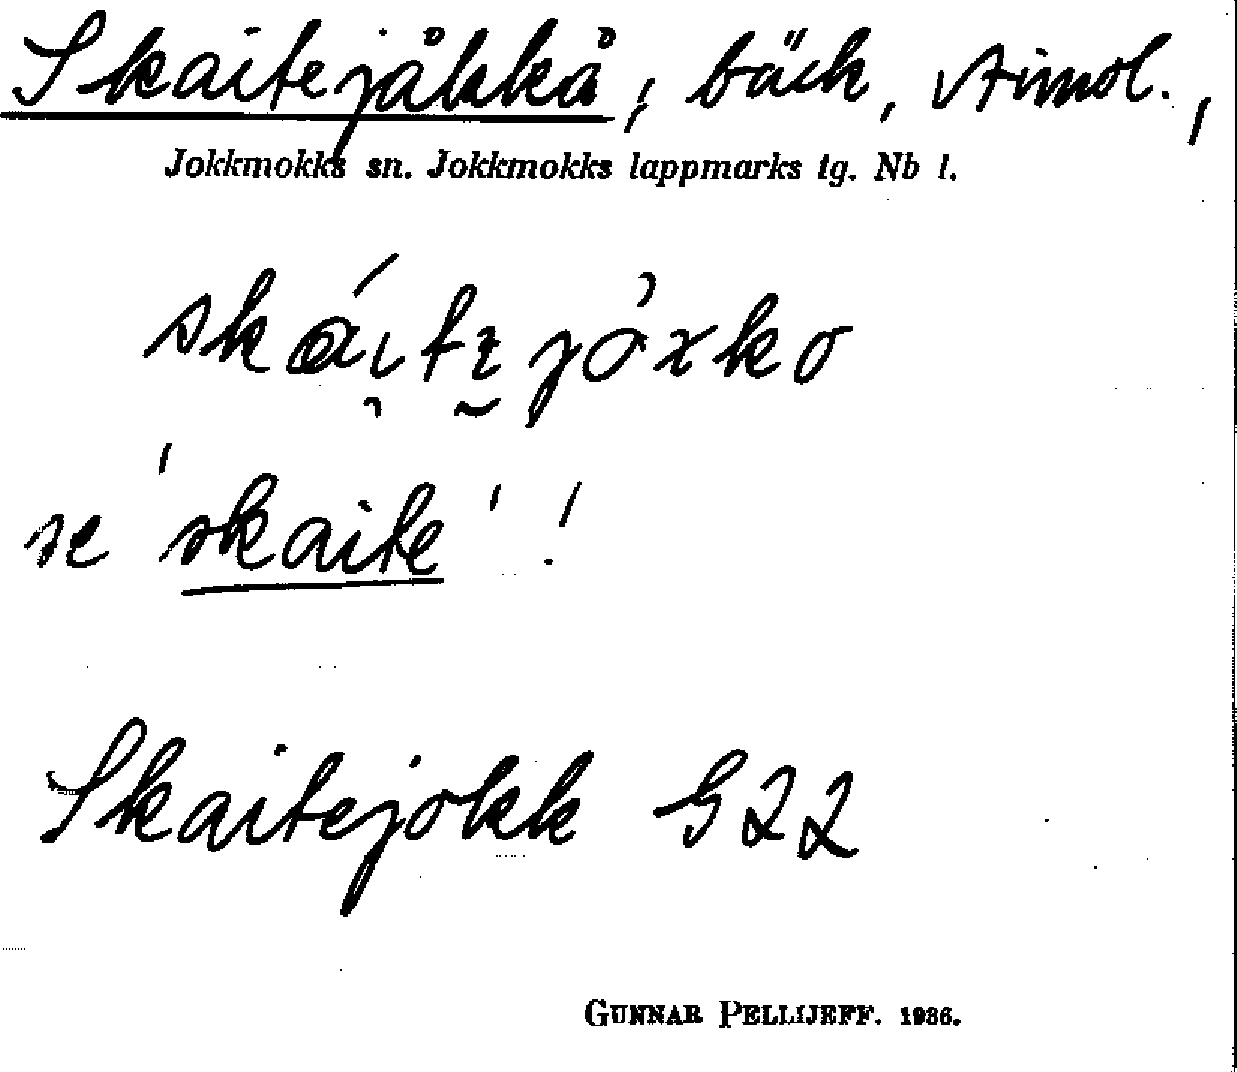 Skaitejåkkå, bäck, Aimol.,
Jokkmokks sn. Jokkmokks lappmarks tg. Nb l.
se 'skaite'!
Skaitejokk G22
GUNNAR PELLIJEFF. 1936.